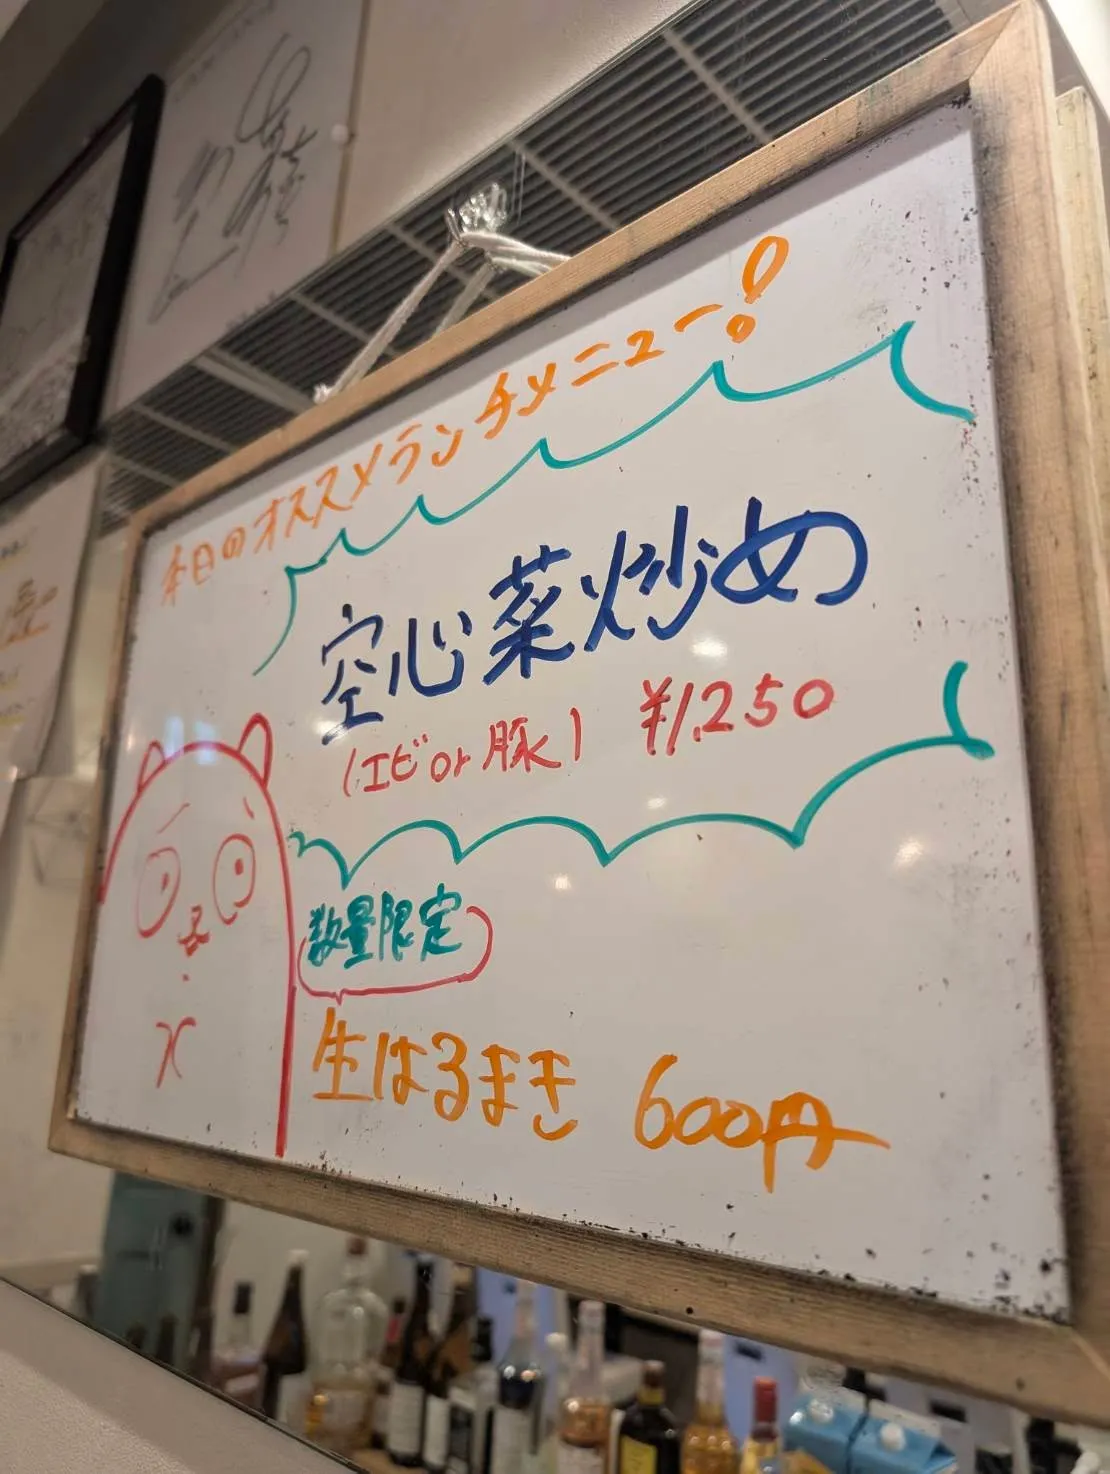 本日のオススメランチメニュー!
空心菜炒め
(エビor豚) ¥1,250
数量限定
生はるまき 600円